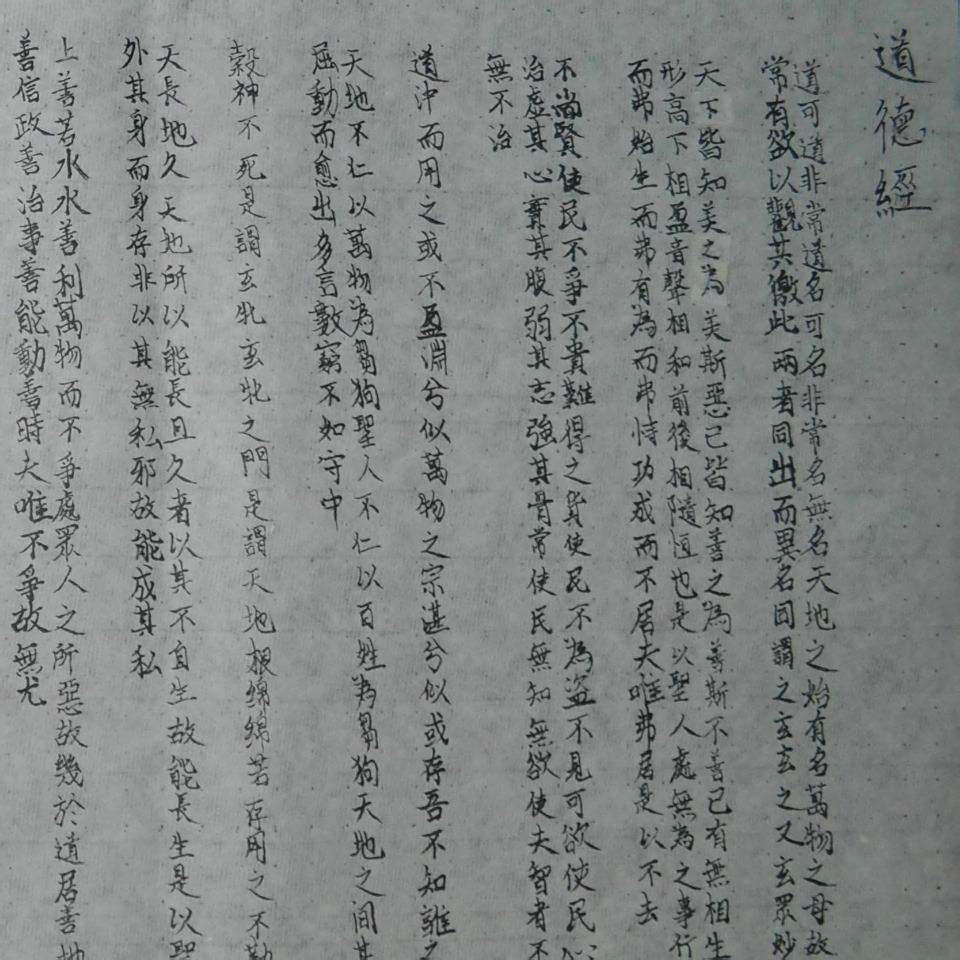 道德經
道可道非常道名可名非常名無名天地之始有名萬物之母故
常有欲以觀其徼此兩者同出而異名同謂之玄玄之又玄眾妙
天下皆知美之為美斯惡已皆知善之為善斯不善已有無相生
形高下相盈音聲相和前後相隨恒也是以聖人處無為之事行
而弗始生而弗有為而弗恃功成而不居夫唯弗居是以不去
不尚賢使民不爭不貴難得之貨使民不為盜不見可欲使民心
治虛其心實其腹弱其志強其骨常使民無知無欲使夫智者不
無不治
道沖而用之或不盈淵兮似萬物之宗湛兮似或存吾不知誰之
天地不仁以萬物為芻狗聖人不仁以百姓為芻狗天地之間其
屈動而愈出多言數窮不如守中
榖神不死是謂玄牝玄牝之門是謂天地根綿綿若存用之不勤
天長地久天地所以能長且久者以其不自生故能長生是以聖
外其身而身存非以其無私邪故能成其私
上善若水水善利萬物而不爭處眾人之所惡故幾於道居善地
善信政善治事善能動善時夫唯不爭故無尤